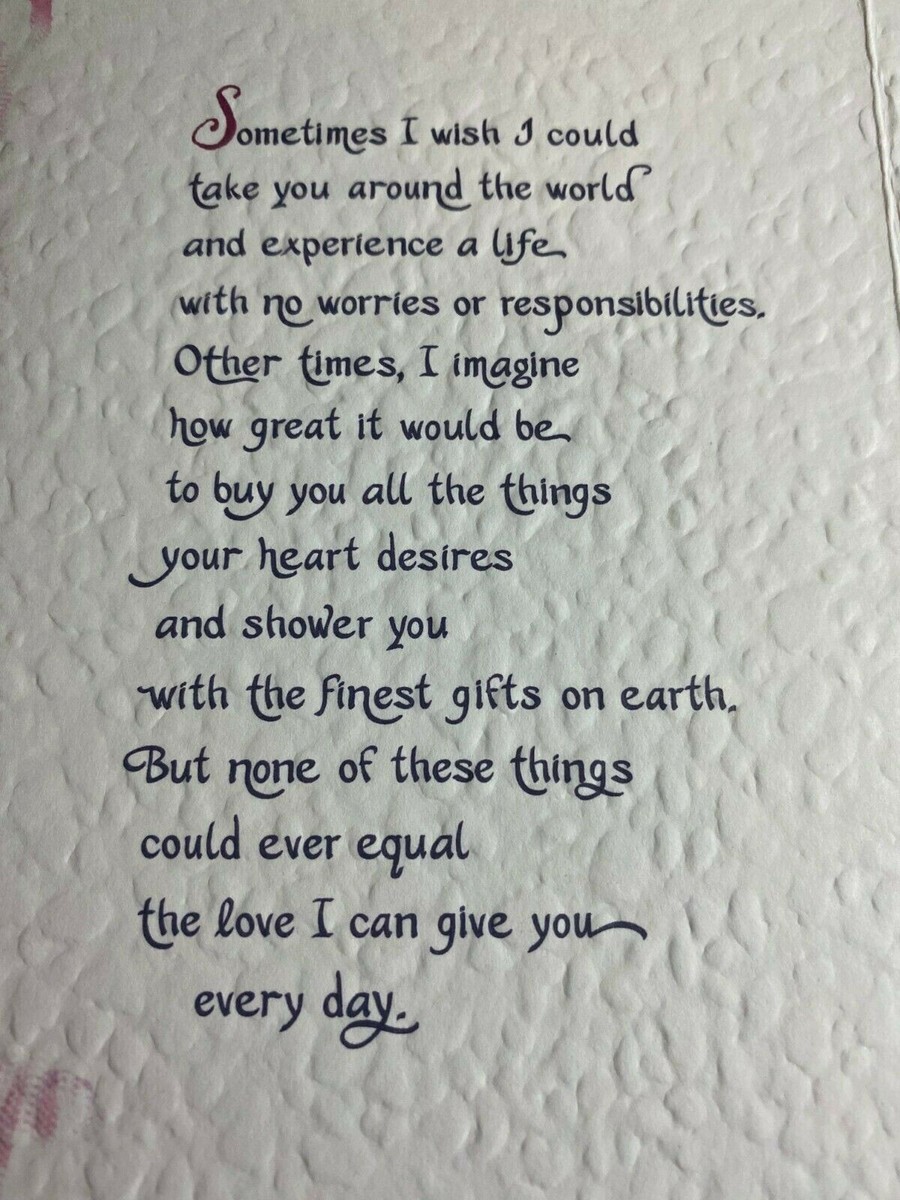 Sometimes I wish I could
take you around the world
and experience a life
with no worries or responsibilities.
Other times, I imagine
how great it would be
to buy you all the things
your heart desires
and shower you
with the finest gifts on earth.
But none of these things
could ever equal
the love I can give you
every day.